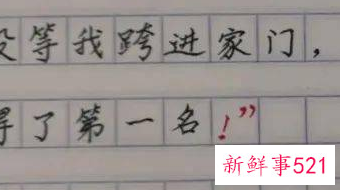 没等我跨进家门，
得了第一名！”
新鲜事521